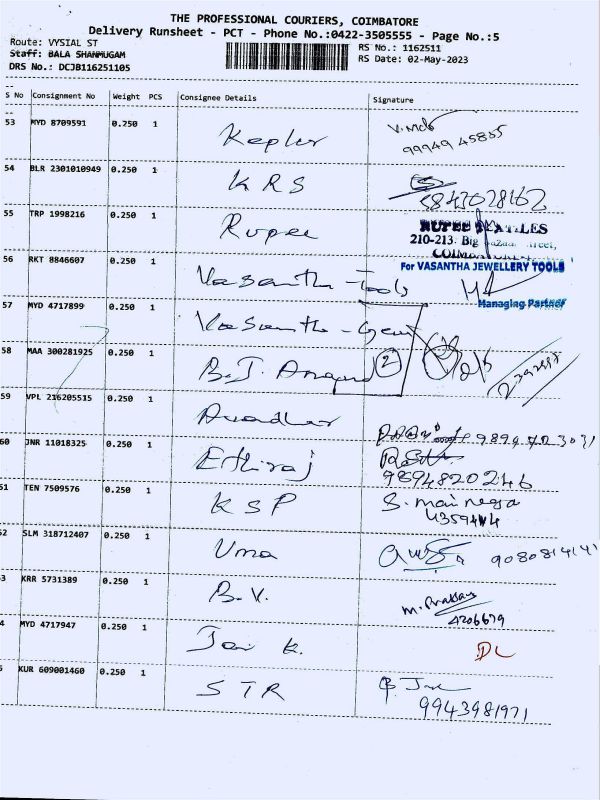 THE PROFESSIONAL COURIERS, COIMBATORE
Delivery Runsheet - PCT - Phone No.:0422-3505555 - Page No.:5
Route: VYSIAL ST
RS No.: 1162511
Staff: BALA SHANMUGAM
RS Date: 02-May-2023
DRS No.: DCJB116251105
S No Consignment No Weight PCS Consignee Details Signature
53 MYD 8709591 0.250 1 Kepler
99949 45855
54 BLR 2301010949 0.250 1 KRS
9843028162
55 TRP 1998216 0.250 1 Rupee
RUPEE TEXTILES
210-213, Big Bazaar Street,
56 RKT 8846607 0.250 1 Vasantha - Tools
For VASANTHA JEWELLERY TOOLS
Managing Partner
57 MYD 4717899 0.250 1 Vasantha - Gem
58 MAA 300281925 0.250 1 B.J. Anand 2
59 VPL 216205515 0.250 1
60 JNR 11018325 0.250 1 Ethiraj
9894820246
51 TEN 7509576 0.250 1 KSP
52 SLM 318712407 0.250 1 Uma
9080814141
3 KRR 5731389 0.250 1 B.V.
4206679
4 MYD 4717947 0.250 1 Jai K. DL
KUR 609001460 0.250 1 STR
9943981971